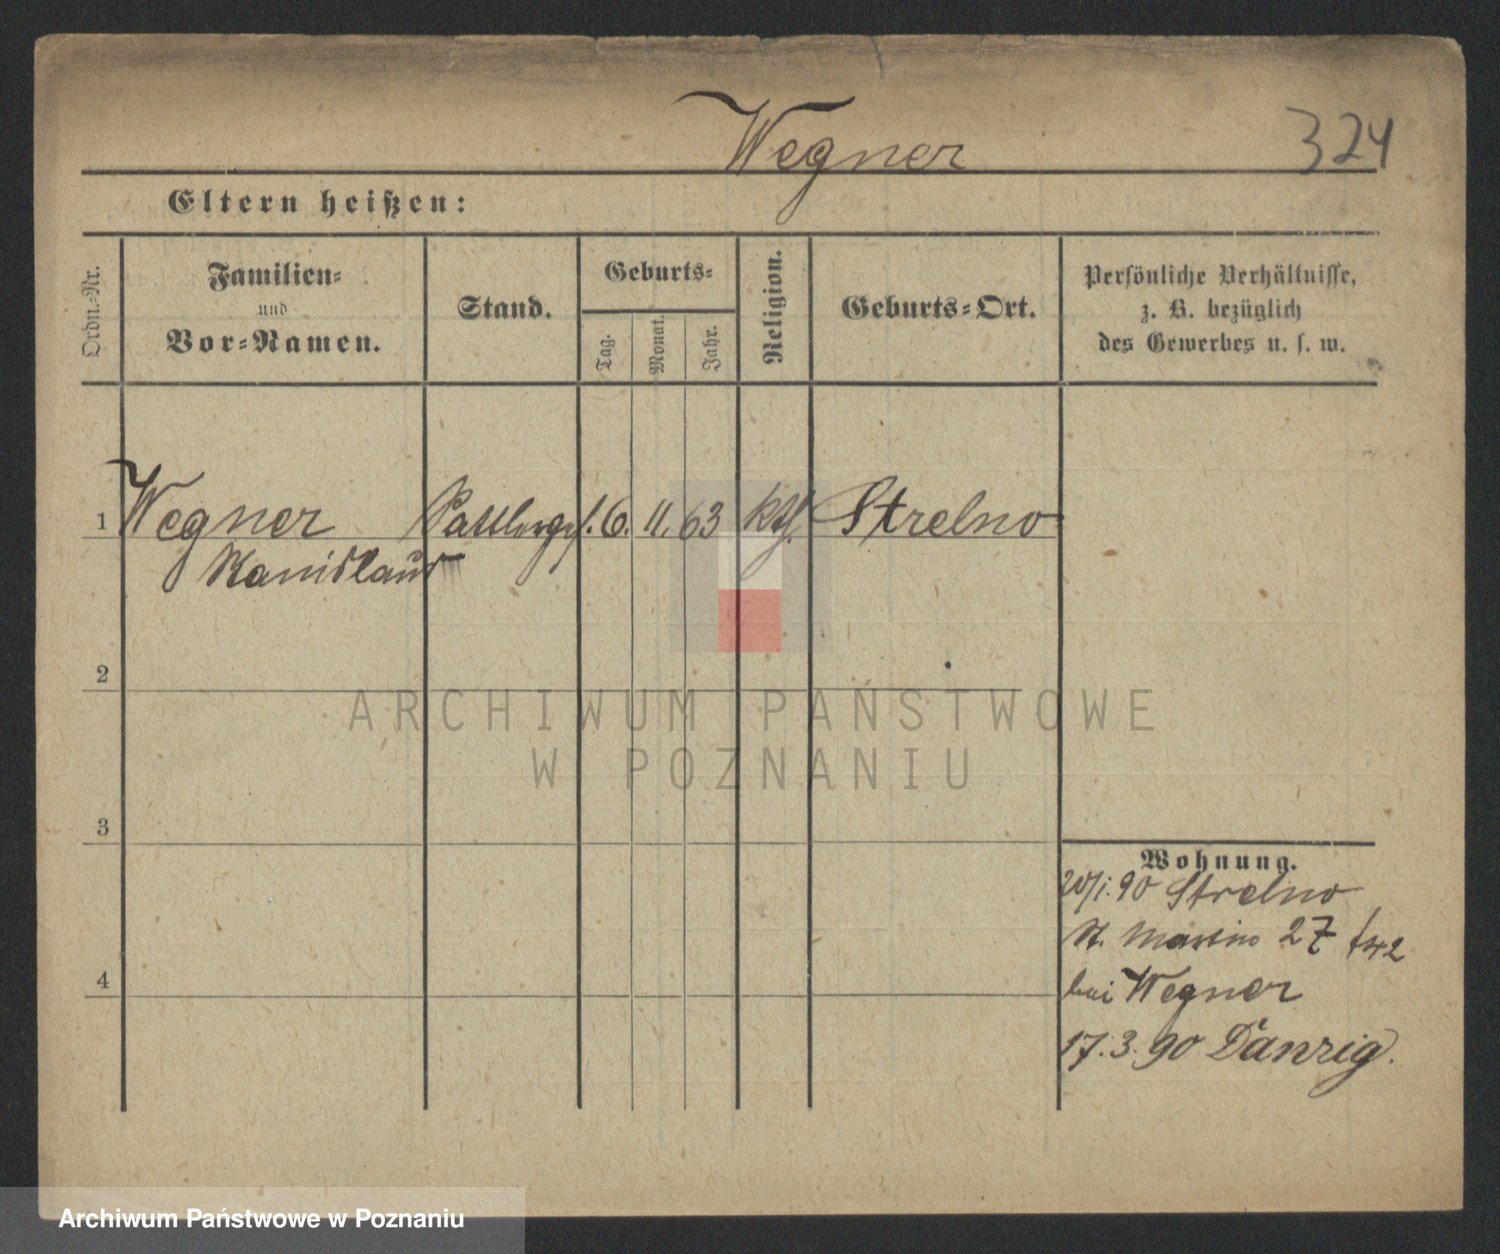 Wegner 324
Eltern heißen:
Ordn.-Nr.
Familien-
und
Vor-Namen.
Stand.
Geburts-
Tag.
Monat.
Jahr.
Religion.
Geburts-Ort.
Persönliche Verhältnisse,
z. B. bezüglich
des Gewerbes u. s. w.
1 Wegner Sattlerges. 6. 11. 63 kth. Strelno
Stanislaus
2
3
4
Wohnung.
20/1. 90 Strelno
St. Martin 27
bei Wegner
17. 3. 90 Danzig.
ARCHIWUM PAŃSTWOWE
W POZNANIU
Archiwum Państwowe w Poznaniu